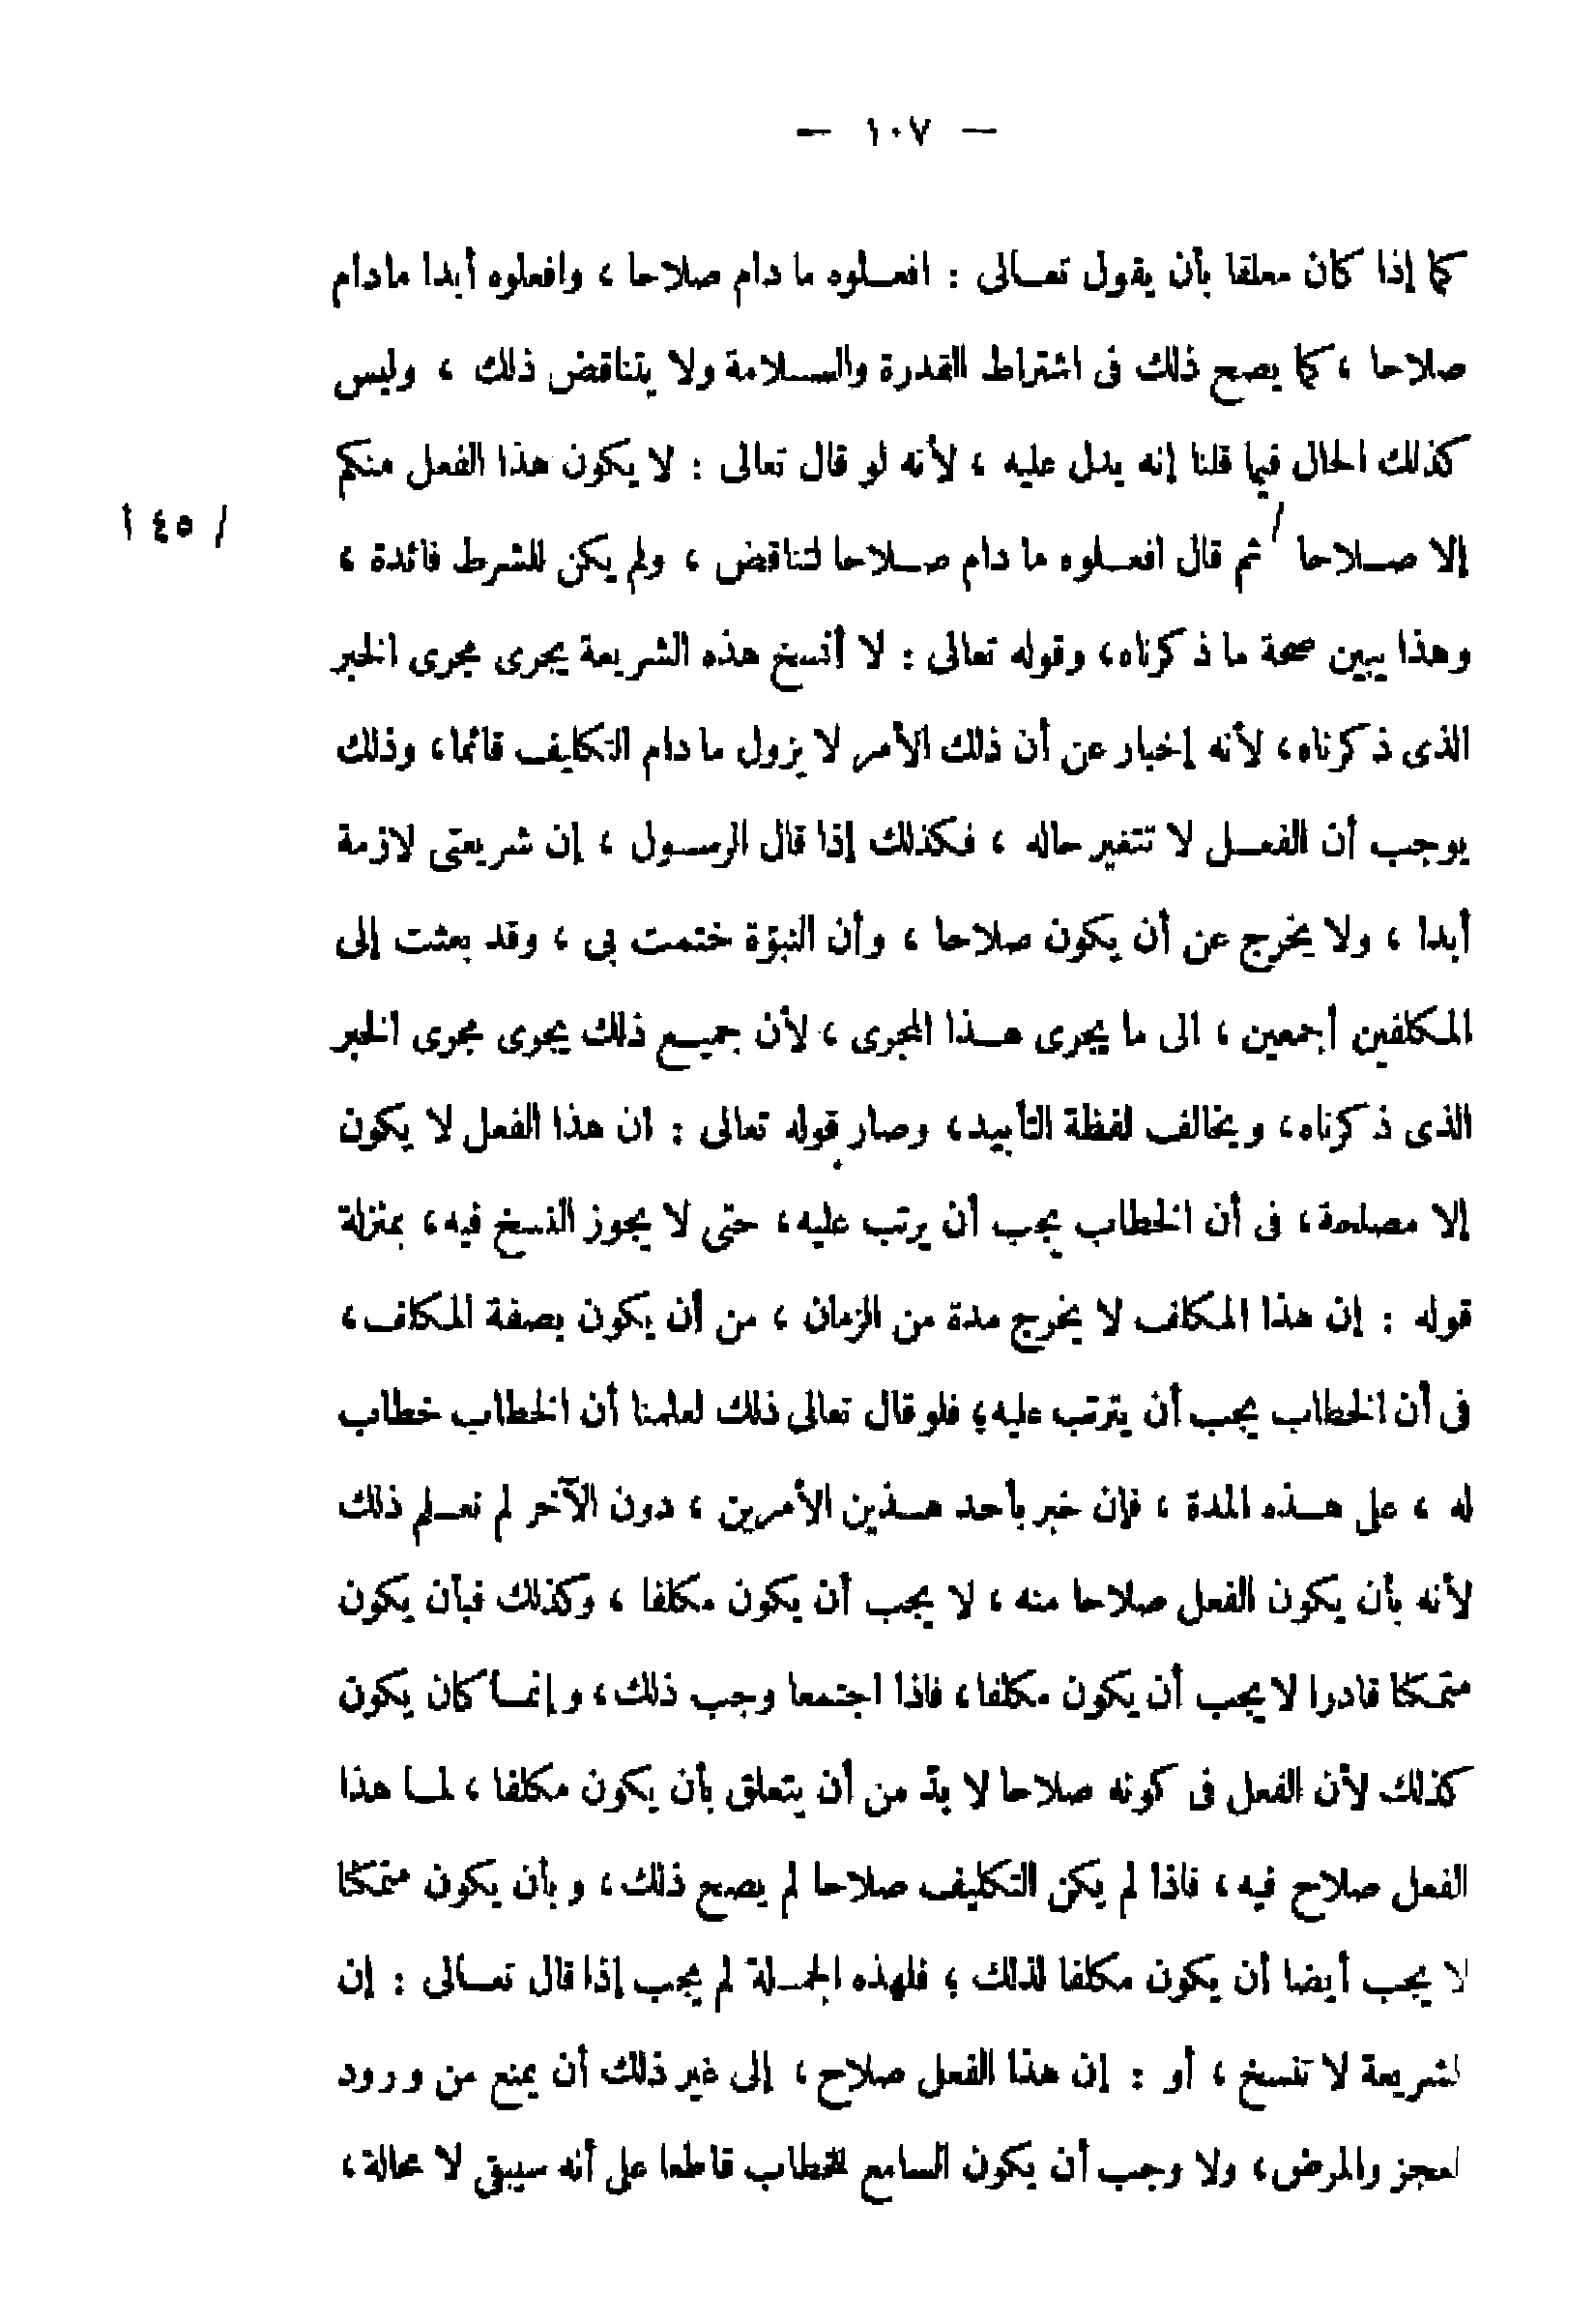 — ١٠٧ —
كما إذا كان معلقا بأن يقول تعالى : افعلوه ما دام صلاحا ، وافعلوه أبدا مادام
صلاحا ، كما يصح ذلك فى اشتراط القدرة والسلامة ولا يتناقض ذلك ، وليس
كذلك الحال فيما قلنا إنه يدل عليه ، لأنه لو قال تعالى : لا يكون هذا الفعل منكم
إلا صلاحا / ثم قال افعلوه ما دام صلاحا لتناقض ، ولم يكن للشرط فائدة ،
/ ٤٥ أ
وهذا يبين صحة ما ذكرناه ، وقوله تعالى : لا أنسخ هذه الشريعة يجرى مجرى الخبر
الذى ذكرناه ، لأنه إخبار عن أن ذلك الأمر لا يزول ما دام التكليف قائما ، وذلك
يوجب أن الفعل لا تتغير حاله ، فكذلك إذا قال الرسول ، إن شريعتى لازمة
أبدا ، ولا يخرج عن أن يكون صلاحا ، وأن النبوّة ختمت بى ، وقد بعثت إلى
المكلفين أجمعين ، الى ما يجرى هذا المجرى ، لأن جميع ذلك يجرى مجرى الخبر
الذى ذكرناه ، ويخالف لفظة التأبيد ، وصار قوله تعالى : ان هذا الفعل لا يكون
إلا مصلحة ، فى أن الخطاب يجب أن يرتب عليه ، حتى لا يجوز النسخ فيه ، بمنزلة
قوله : إن هذا المكلف لا يخرج مدة من الزمان ، من أن يكون بصفة المكلف ،
فى أن الخطاب يجب أن يترتب عليه ؛ فلو قال تعالى ذلك لعلمنا أن الخطاب خطاب
له ، على هذه المدة ، فإن خبر بأحد هذين الأمرين ، دون الآخر لم نعلم ذلك
لأنه بأن يكون الفعل صلاحا منه ، لا يجب أن يكون مكلفا ، وكذلك فبأن يكون
متمكنا قادرا لا يجب أن يكون مكلفا ، فاذا اجتمعا وجب ذلك ، وإنما كان يكون
كذلك لأن الفعل فى كونه صلاحا لا بدّ من أن يتعلق بأن يكون مكلفا ، لما هذا
الفعل صلاح فيه ، فاذا لم يكن التكليف صلاحا لم يصح ذلك ، وبأن يكون متمكنا
لا يجب أيضا أن يكون مكلفا لذلك ؛ فلهذه الجملة لم يجب إذا قال تعالى : إن
لشريعة لا تنسخ ، أو : إن هذا الفعل صلاح ، إلى غير ذلك أن يمنع من ورود
لعجز والمرض ، ولا وجب أن يكون السامع للخطاب قاطعا على أنه سيبقى لا محالة ،